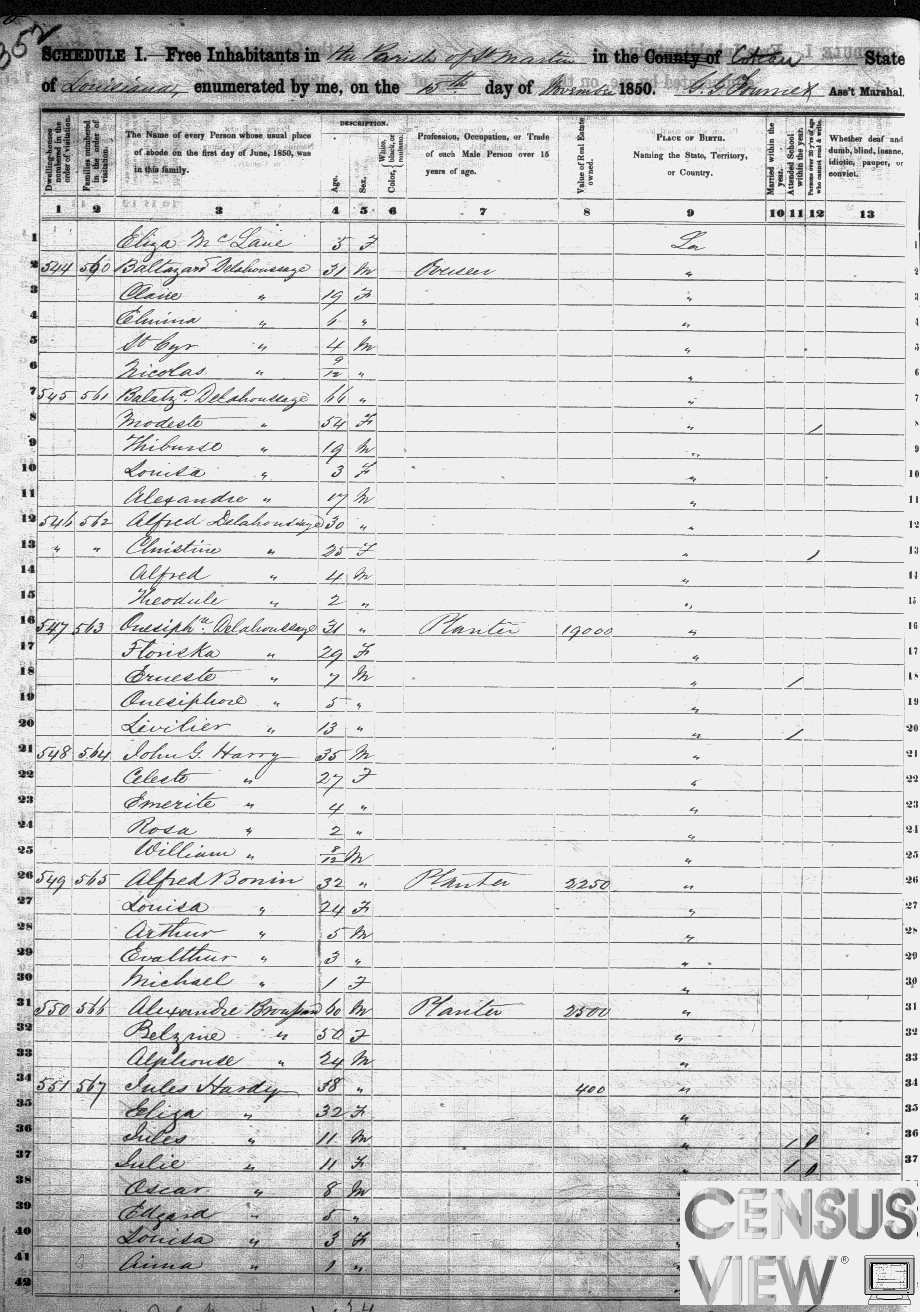 352
SCHEDULE I. Free Inhabitants in the Parish of St Martin in the County of State
of Louisiana, enumerated by me, on the 15th day of November 1850. Ass't Marshal.
DESCRIPTION.
Dwelling-houses numbered in the order of visitation. Families numbered in the order of visitation. The Name of every Person whose usual place of abode on the first day of June, 1850, was in this family. Age. Sex. Color, White, black, or mulatto. Profession, Occupation, or Trade of each Male Person over 15 years of age. Value of Real Estate owned. PLACE OF BIRTH. Naming the State, Territory, or Country. Married within the year. Attended School within the year. Persons over 20 y'rs of age who cannot read & write. Whether deaf and dumb, blind, insane, idiotic, pauper, or convict.
1 2 3 4 5 6 7 8 9 10 11 12 13
1 Eliza Mc Lane 5 F La 1
2 544 560 Baltazard Delahoussaye 31 M " 2
3 Claire " 19 F " 3
4 Elmina " 6 " " 4
5 St Cyr " 4 M " 5
6 Nicolas " 9/12 " " 6
7 545 561 Balatzd. Delahoussaye 66 " " 7
8 Modeste " 54 F " / 8
9 Thiburse " 19 M " 9
10 Louisa " 3 F " 10
11 Alexandre " 17 M " 11
12 546 562 Alfred Delahoussaye 30 " " 12
13 " " Christine " 25 F " / 13
14 Alfred " 4 M " 14
15 Theodule " 2 " " 15
16 547 563 Onesiphre. Delahoussaye 31 " Planter 19000 " 16
17 Floriska " 29 F " 17
18 Erneste " 7 M " / 18
19 Onesiphore " 5 " " 19
20 Livilier " 13 " " / 20
21 548 564 John G. Harry 35 M " 21
22 Celeste " 27 F " 22
23 Emerite " 4 " " 23
24 Rosa " 2 " " 24
25 William " 8/12 M " 25
26 549 565 Alfred Bonin 32 " Planter 2250 " 26
27 Louisa " 24 F " 27
28 Arthur " 5 M " 28
29 Evalthur " 3 " " 29
30 Michael " 1 F " 30
31 550 566 Alexandre 60 M Planter 2500 " 31
32 Belzire " 50 F " 32
33 Alphonse " 24 M " 33
34 551 567 Jules Hardy 38 " 400 " 34
35 Eliza " 32 F " 35
36 Jules " 11 M " / 36
37 Julie " 11 F " / 37
38 Oscar " 8 M
39 Edgard " 5 "
40 Louisa " 3 F
41 Aima " 1 "
42
CENSUS
VIEW®